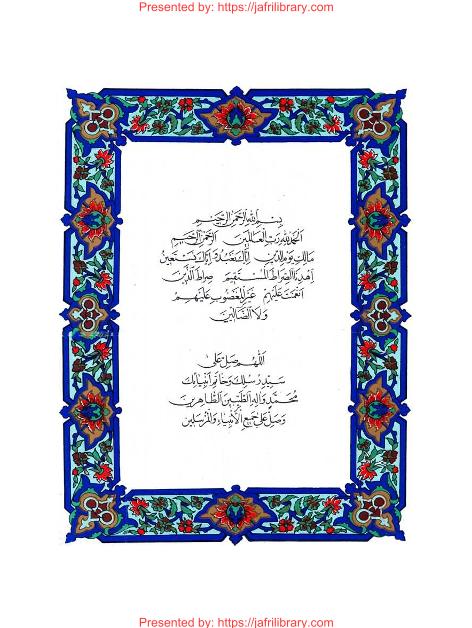 Presented by: https://jafrilibrary.com
بسم الله الرحمن الرحيم
الحمد لله رب العالمين الرحمن الرحيم
مالك يوم الدين إياك نعبد وإياك نستعين
اهدنا الصراط المستقيم صراط الذين
أنعمت عليهم غير المغضوب عليهم
ولا الضالين
اللهم صل على
سيد رسلك وخاتم أنبيائك
محمد وآله الطيبين الطاهرين
وصل على جميع الأنبياء والمرسلين
Presented by: https://jafrilibrary.com